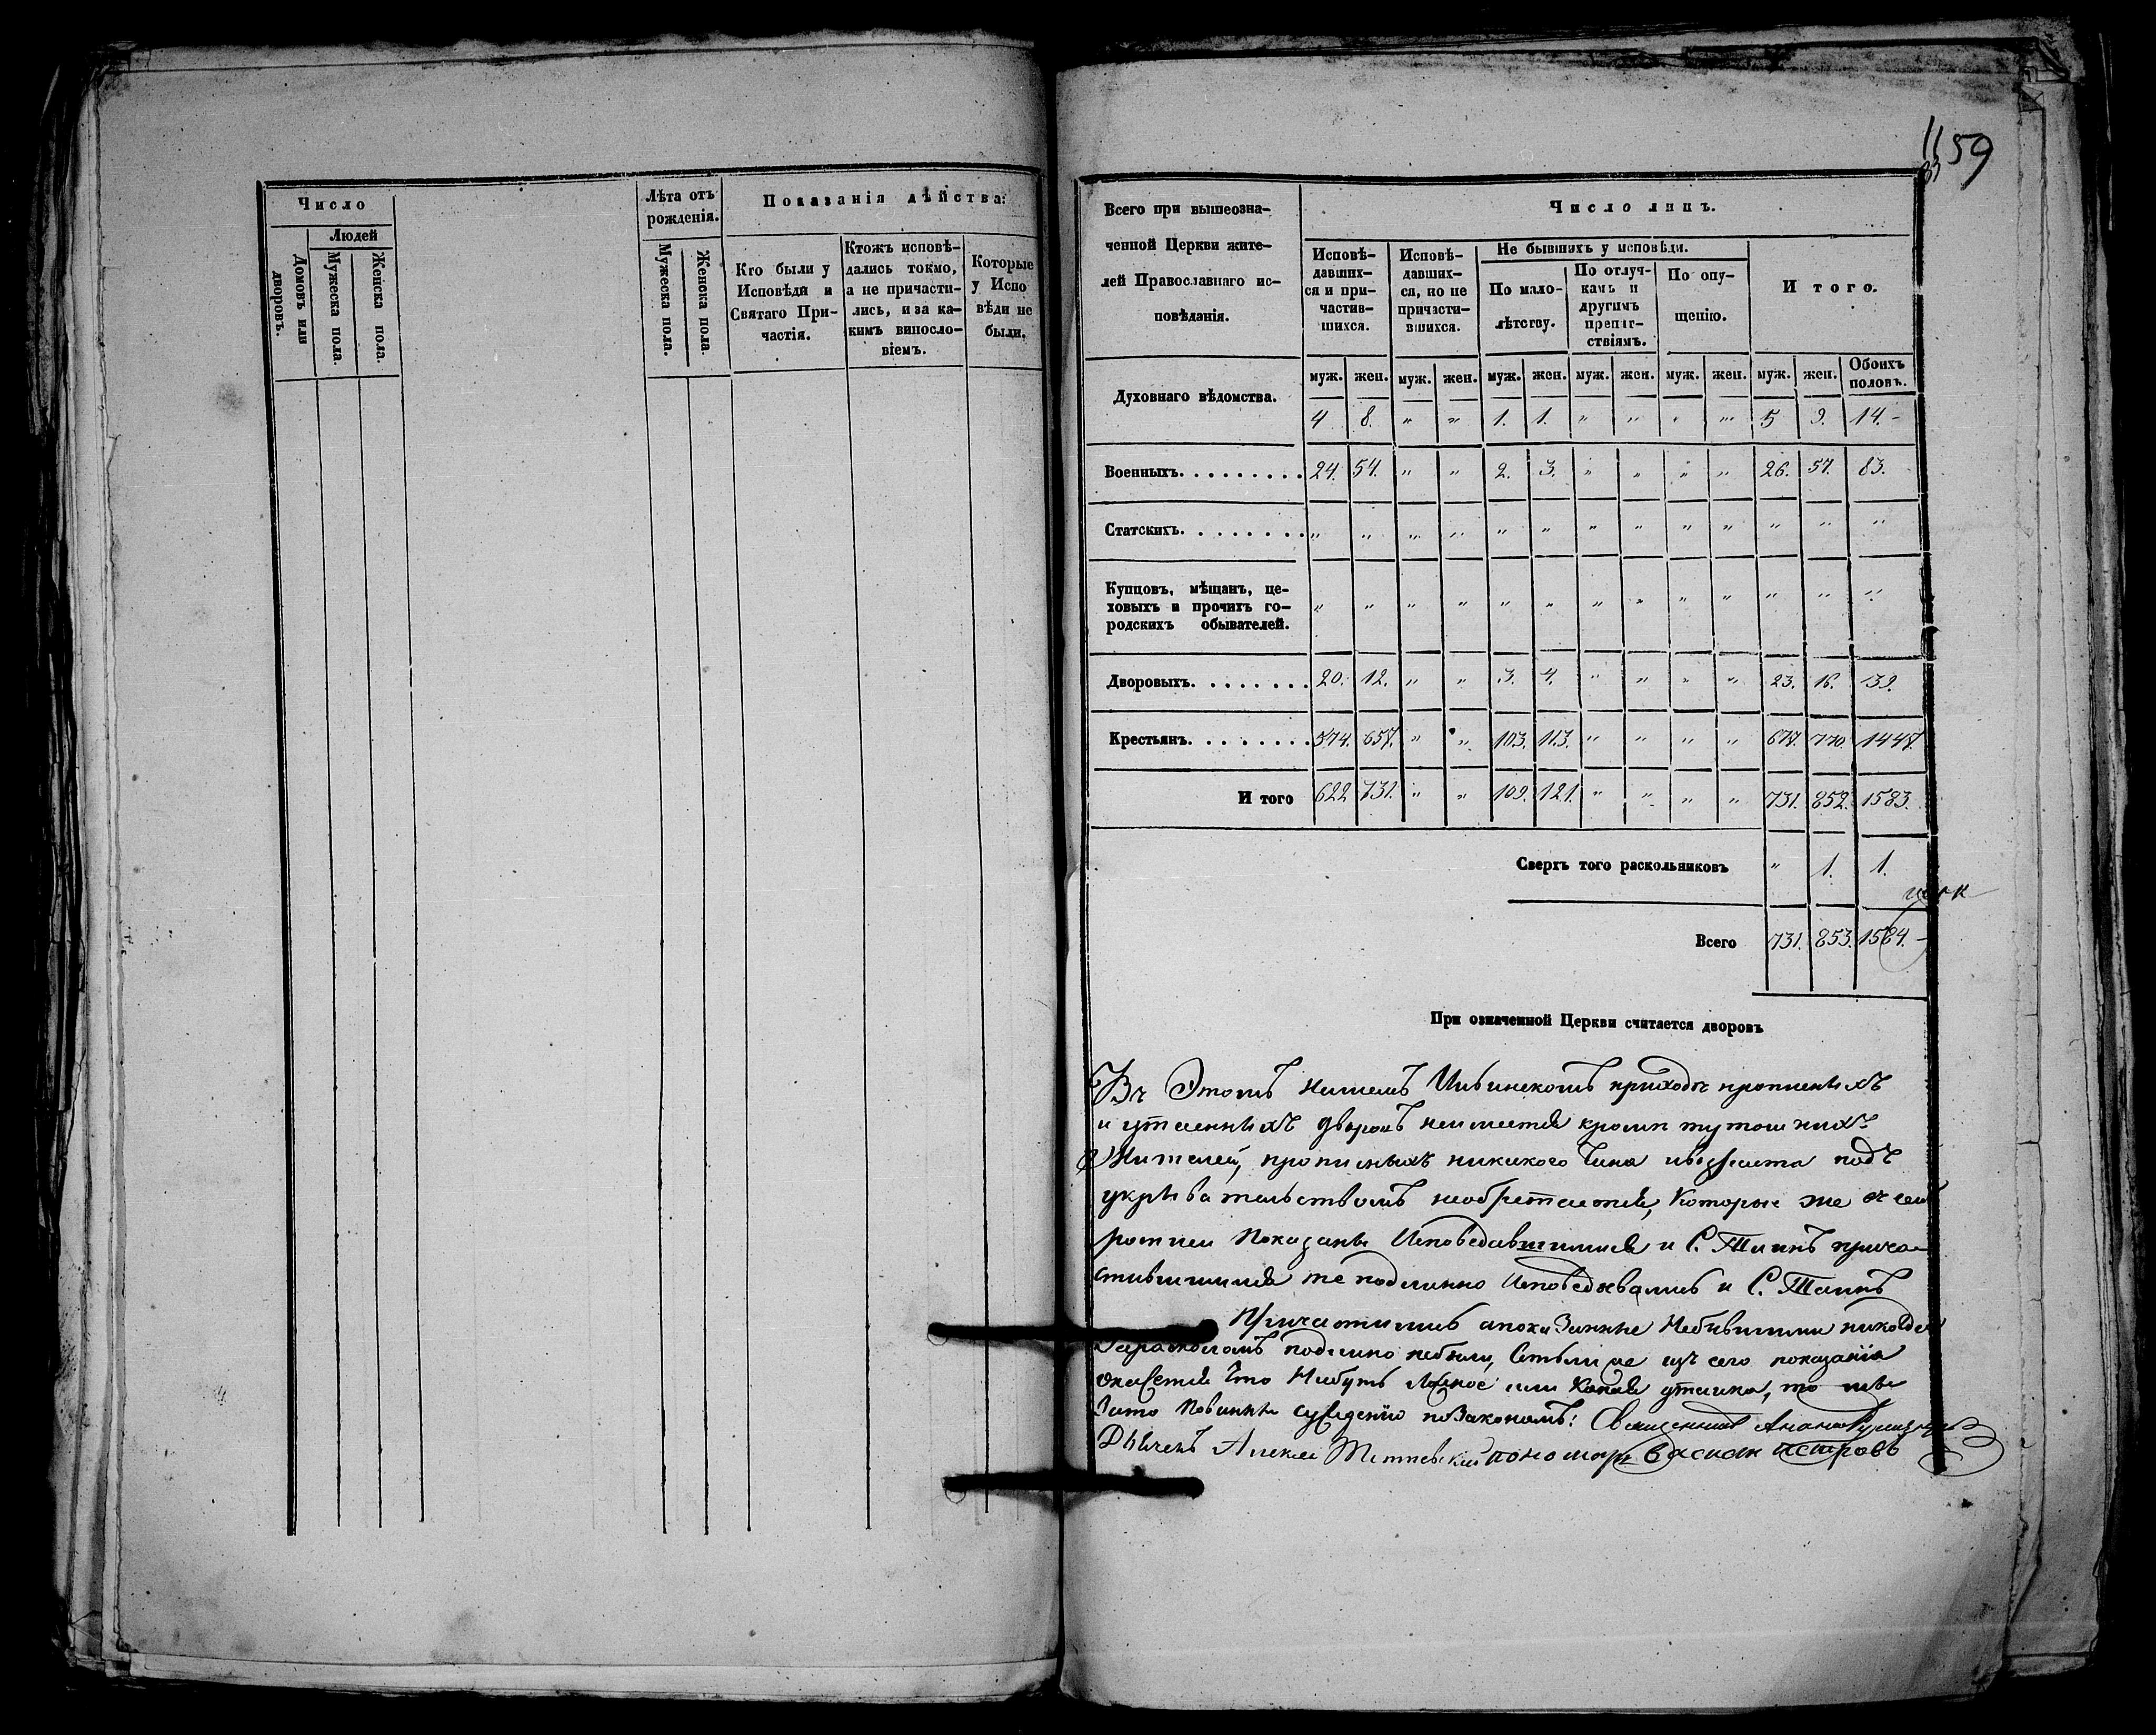 Число
Людей
Домовъ или дворовъ.
Мужеска пола.
Женска пола.
Лѣта отъ рожденія.
Мужеска пола.
Женска пола.
Показанія дѣйства:
Кто были у
Исповѣди и
Святаго При-
частія.
Ктожъ исповѣ-
дались токмо,
а не причасти-
лись, и за ка-
кимъ винословіемъ.
Которые
у Испо
вѣди не
были.
1159
Всего при вышеозна-
ченной Церкви жите-
лей Православнаго ис-
повѣданія.
Число лицъ.
Исповѣ-
давших-
ся и при-
частив-
шихся.
Исповѣ-
давших-
ся, но не
причасти-
вшихся.
Не бывшихъ у исповѣди.
По мало-
лѣтству.
По отлуч-
камъ и
другимъ
препят-
ствіямъ.
По опу-
щенію.
Итого.
муж. жен. муж. жен. муж. жен. муж. жен. муж. жен. муж. жен. Обоихъ половъ.
Духовнаго вѣдомства. 4 8. " " 1. 1. " " " " 5 9. 14.-
Военныхъ. 24. 54. " " 2. 3. " " " " 26. 57. 83.
Статскихъ. " " " " " " " " " " " " "
Купцовъ, мѣщанъ, це-
ховыхъ и прочихъ го-
родскихъ обывателей. " " " " " " " " " " " " "
Дворовыхъ. 20. 12. " " 3. 4. " " " " 23. 16. 39.
Крестьянъ. 574. 657. " " 103. 113. " " " " 677. 770. 1447.
И того 622 731. " " 109. 121. " " " " 731. 852. 1583.
Сверхъ того раскольниковъ " 1. 1.
Всего 731. 853. 1584.-
При означенной Церкви считается дворовъ
Въ Этомъ нашемъ приходѣ прописныхъ
и утаенныхъ дворовъ неимѣется кромѣ тутошнихъ
Жителей, прописныхъ никакого Чина подъ
укрывательствомъ необретается, Которые же
росписи Показаны Исповедавшимися и С. Таинъ прича-
стившимися те подлинно Исповедывались и С. Таинъ
Причастились апоказанные Небывшими
Зарасколомъ подлино небыли, Естьли же изъ сего показанія
окажется Что Нибуть Ложное или Какая утайка, то мы
Зато Повинны сужденію по Законамъ: Священникъ
Дьячекъ Алексей пономарь Петровъ